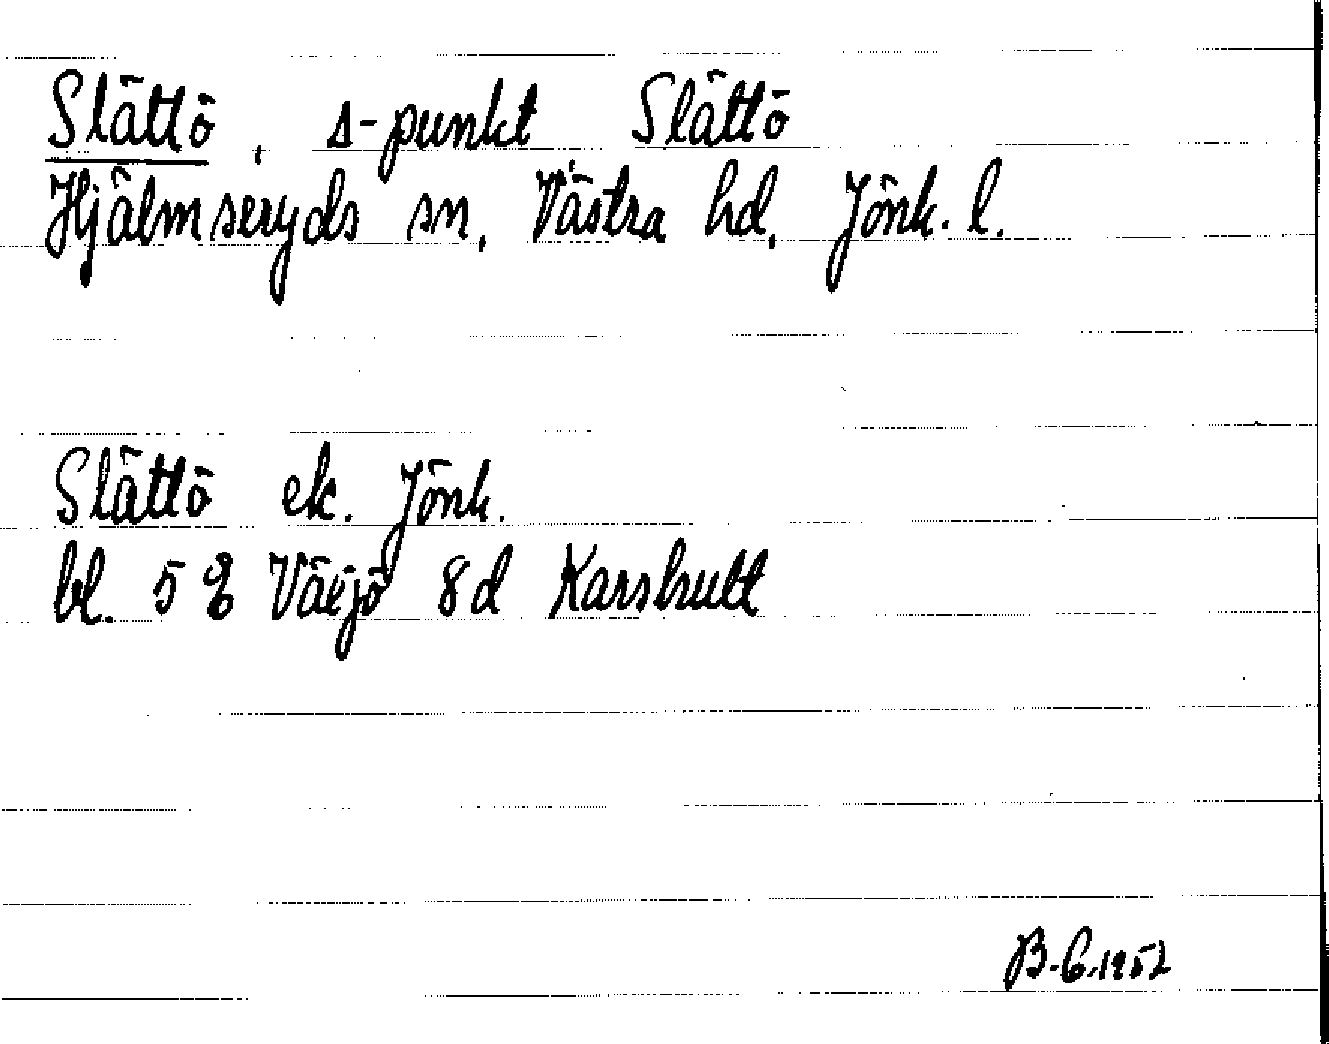 Slättö, s-punkt Slättö
Hjälmseryds sn, Västra hd, Jönk. l.
Slättö ek. Jönk.
bl. 5 g Växjö 8d Karshult
B.C. 1952